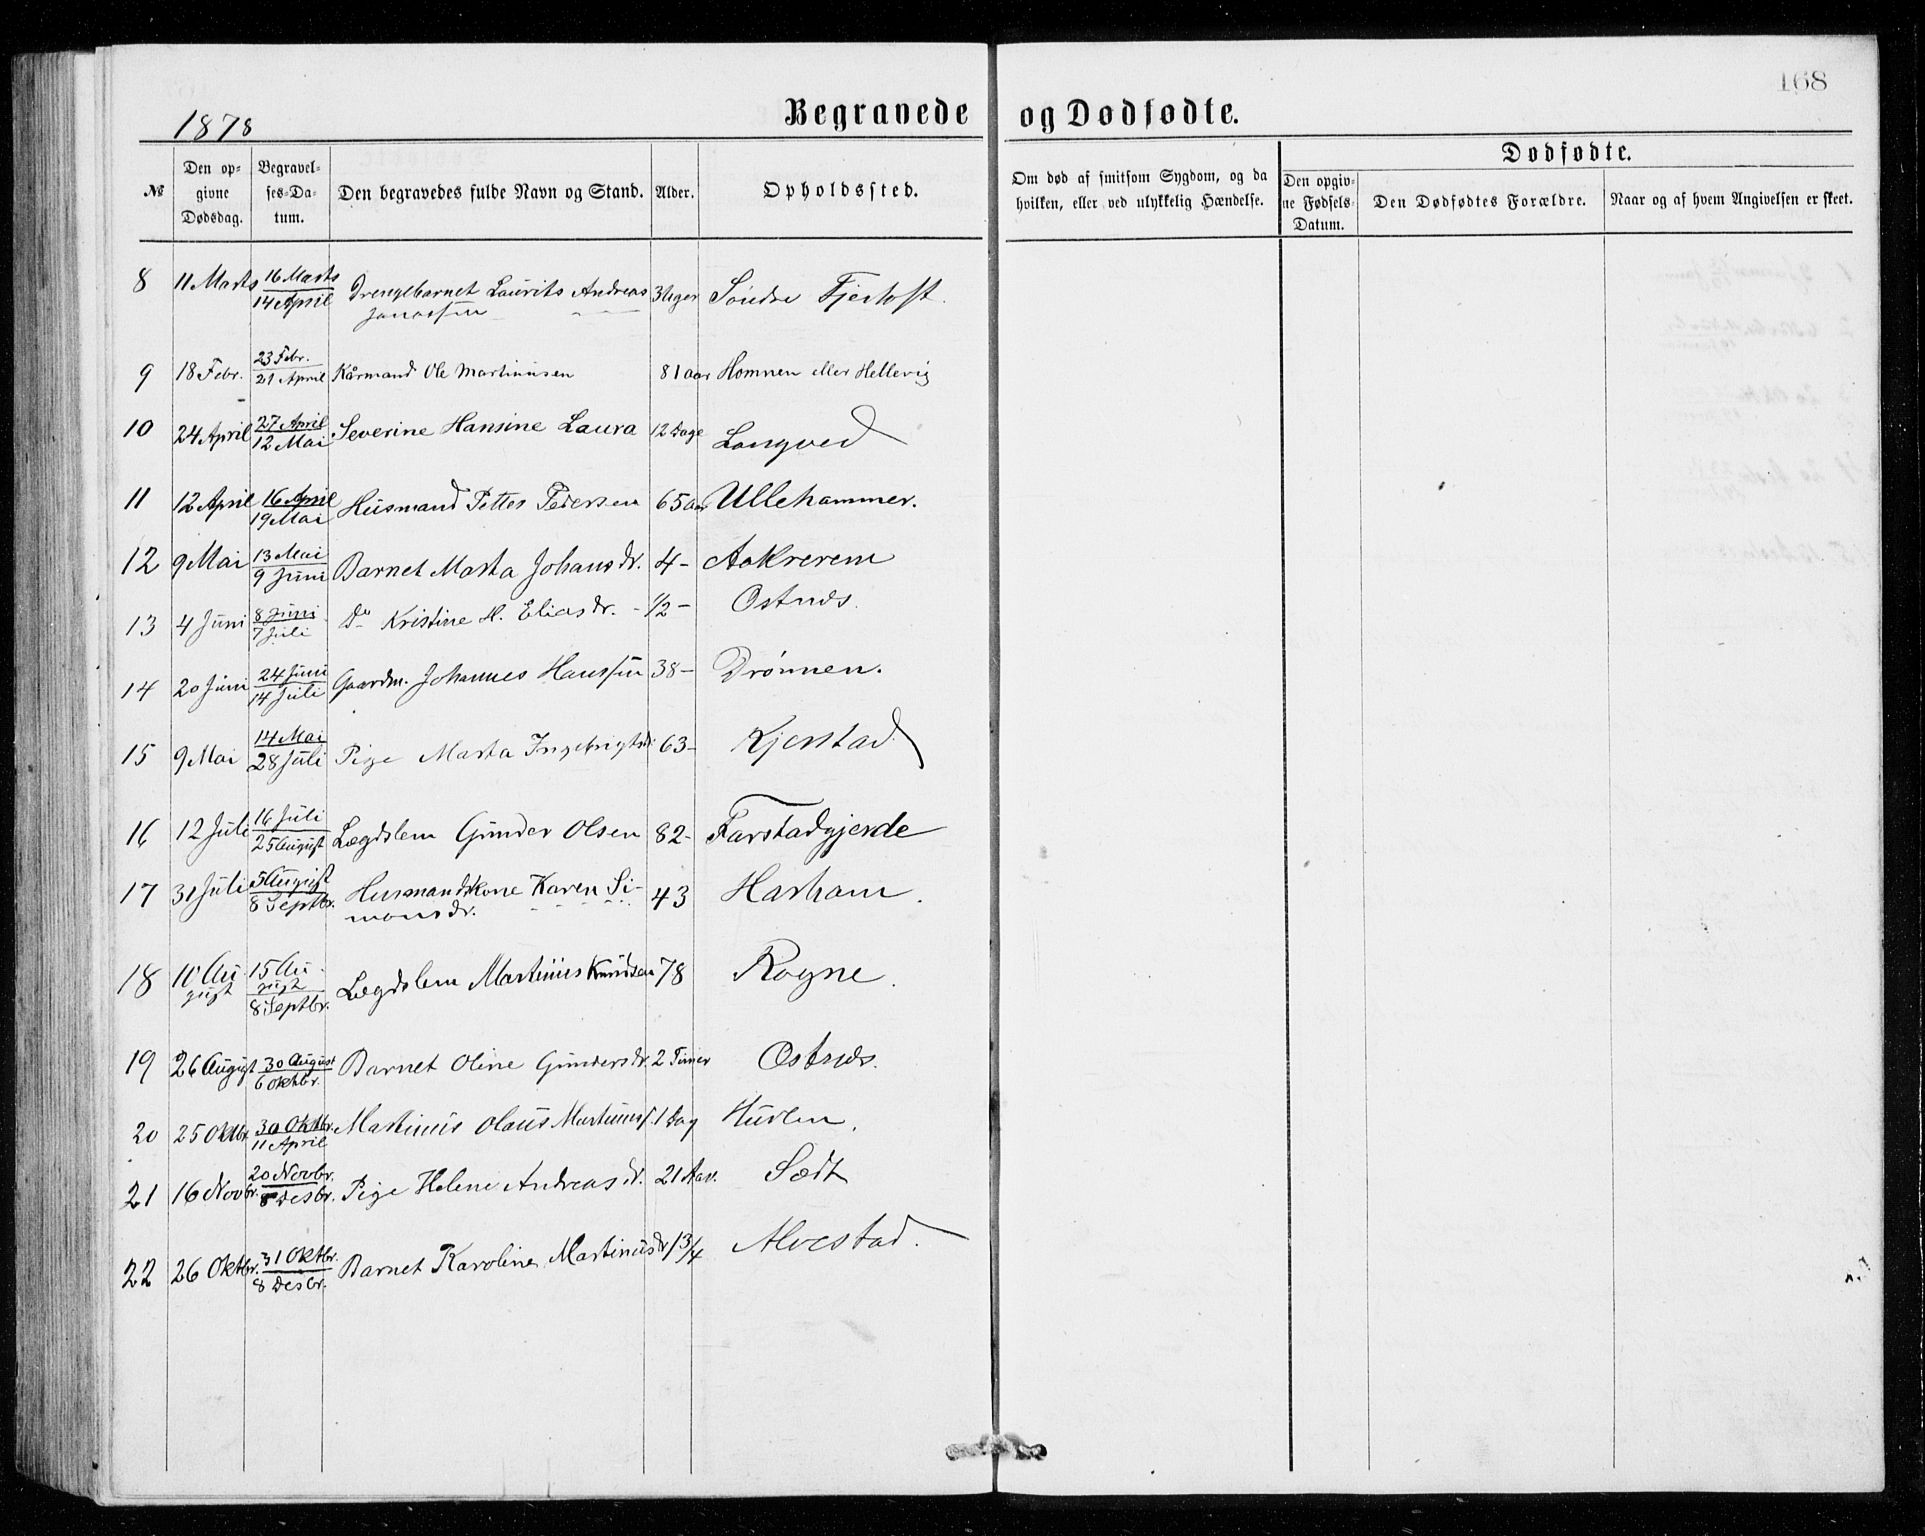 168
1878 Begravede og Dødfødte.
Dødfødte.
№ Den opgivne Dødsdag. Begravelses-Datum. Den begravedes fulde Navn og Stand. Alder. Opholdssted. Om død af smitsom Sygdom, og da hvilken, eller ved ulykkelig Hændelse. Den opgivne Fødsels-Datum. Den Dødfødtes Forældre. Naar og af hvem Angivelsen er skeet.
8 11 Marts 16 Marts 14 April Drengebarnet Laurits Andreas Jonassen 3 Uger Søndre Fjertoft.
9 18 Febr. 23 Febr. 21 April Kårmand Ole Martinusen 81 aar Homnen eller Hellevig
10 24 April 27 April 12 Mai Severine Hansine Laura 12 Dage Longved
11 12 April 16 April 19 Mai Husmand Petter Pedersen 65 aar Ullehammer.
12 9 Mai 13 Mai 9 Juni Barnet Marta Johansdr. 4 - Aakrerem
13 4 Juni 8 Juni 7 Juli Do Kristine M. Eliasdr. - 1/2 - Ostnes.
14 20 Juni 24 Juni 14 Juli Gaardm. Johannes Hanssen 38 - Drønnen.
15 9 Mai 14 Mai 28 Juli Pige Marta Ingebrigtsdr 63 - Kjerstad
16 12 Juli 16 Juli 25 August Lægdslem Gunder Olsen 82 - Farstadgjerde
17 31 Juli 5 August 8 Septbr. Husmandskone Karen Simonsdr. 43 Harham.
18 10 August 15 August 8 Septbr. Lægdslem Martinus Knudsen 78 Rogne.
19 26 August 30 August 6 Oktbr. Barnet Oline Gundersdr. 2 Timer Ostnes.
20 25 Oktbr. 30 Oktbr. 11 April Martinus Olaus Martinusf. 1 Dag Hurlen.
21 16 Novbr. 20 Novbr. 8 Desbr. Pige Helene Andreasdr. 21 Aar. Sædt
22 26 Oktbr. 31 Oktbr. 8 Desbr. Barnet Karoline Martinusdr 1 3/4 Alvestad.